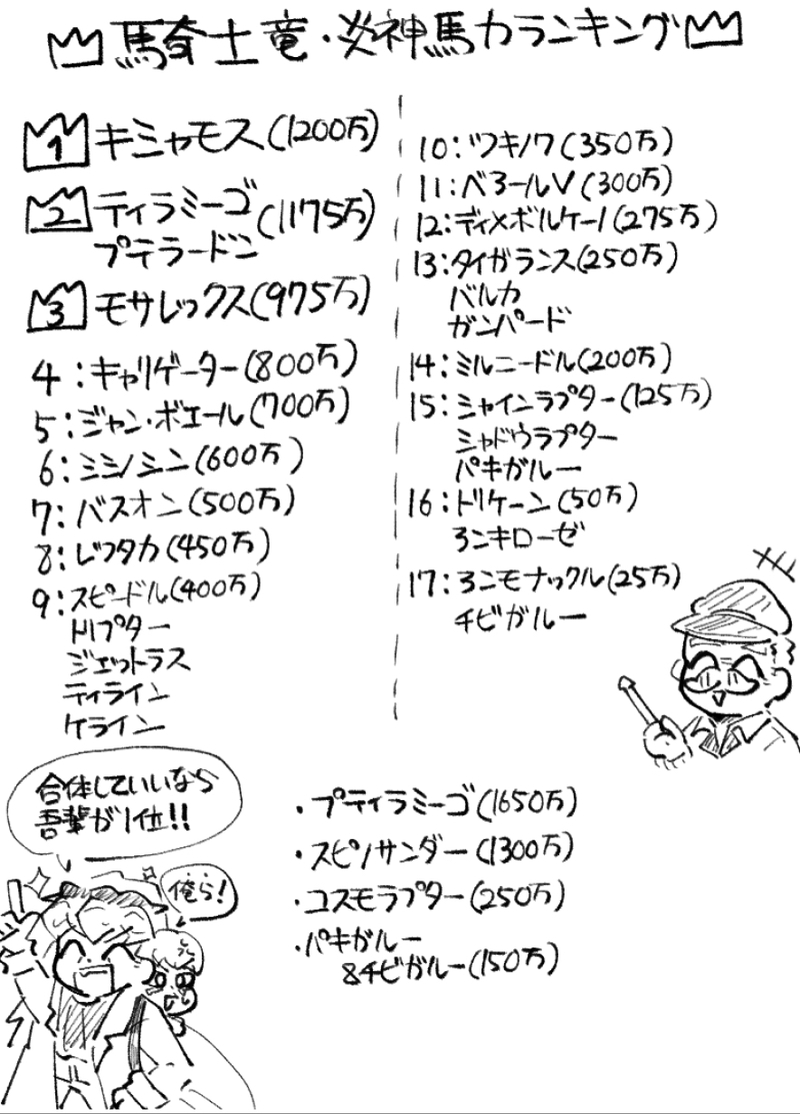 騎士竜・炎神馬力ランキング
1 キシャモス(1200万)
2 ティラミーゴ(1175万)
プテラードン
3 モサレックス(975万)
4:キャリゲーター(800万)
5:ジャン・ボエール(700万)
6:ミシノシン(600万)
7:バスオン(500万)
8:レフタカ(450万)
9:スピードル(400万)
トリプター
ジェットラス
ティライン
ケライン
10:ツキノワ(350万)
11:ベアールV(300万)
12:ディメボルケーノ(275万)
13:タイガランス(250万)
バルカ
ガンパード
14:ミルニードル(200万)
15:シャインラプター(125万)
シャドウラプター
パキガルー
16:トリケーン(50万)
アンキローゼ
17:アンモナックル(25万)
チビガルー
合体していいなら
吾輩が1位!!
俺ら!
・プティラミーゴ(1650万)
・スピノサンダー(1300万)
・コスモラプター(250万)
・パキガルー
&チビガルー(150万)